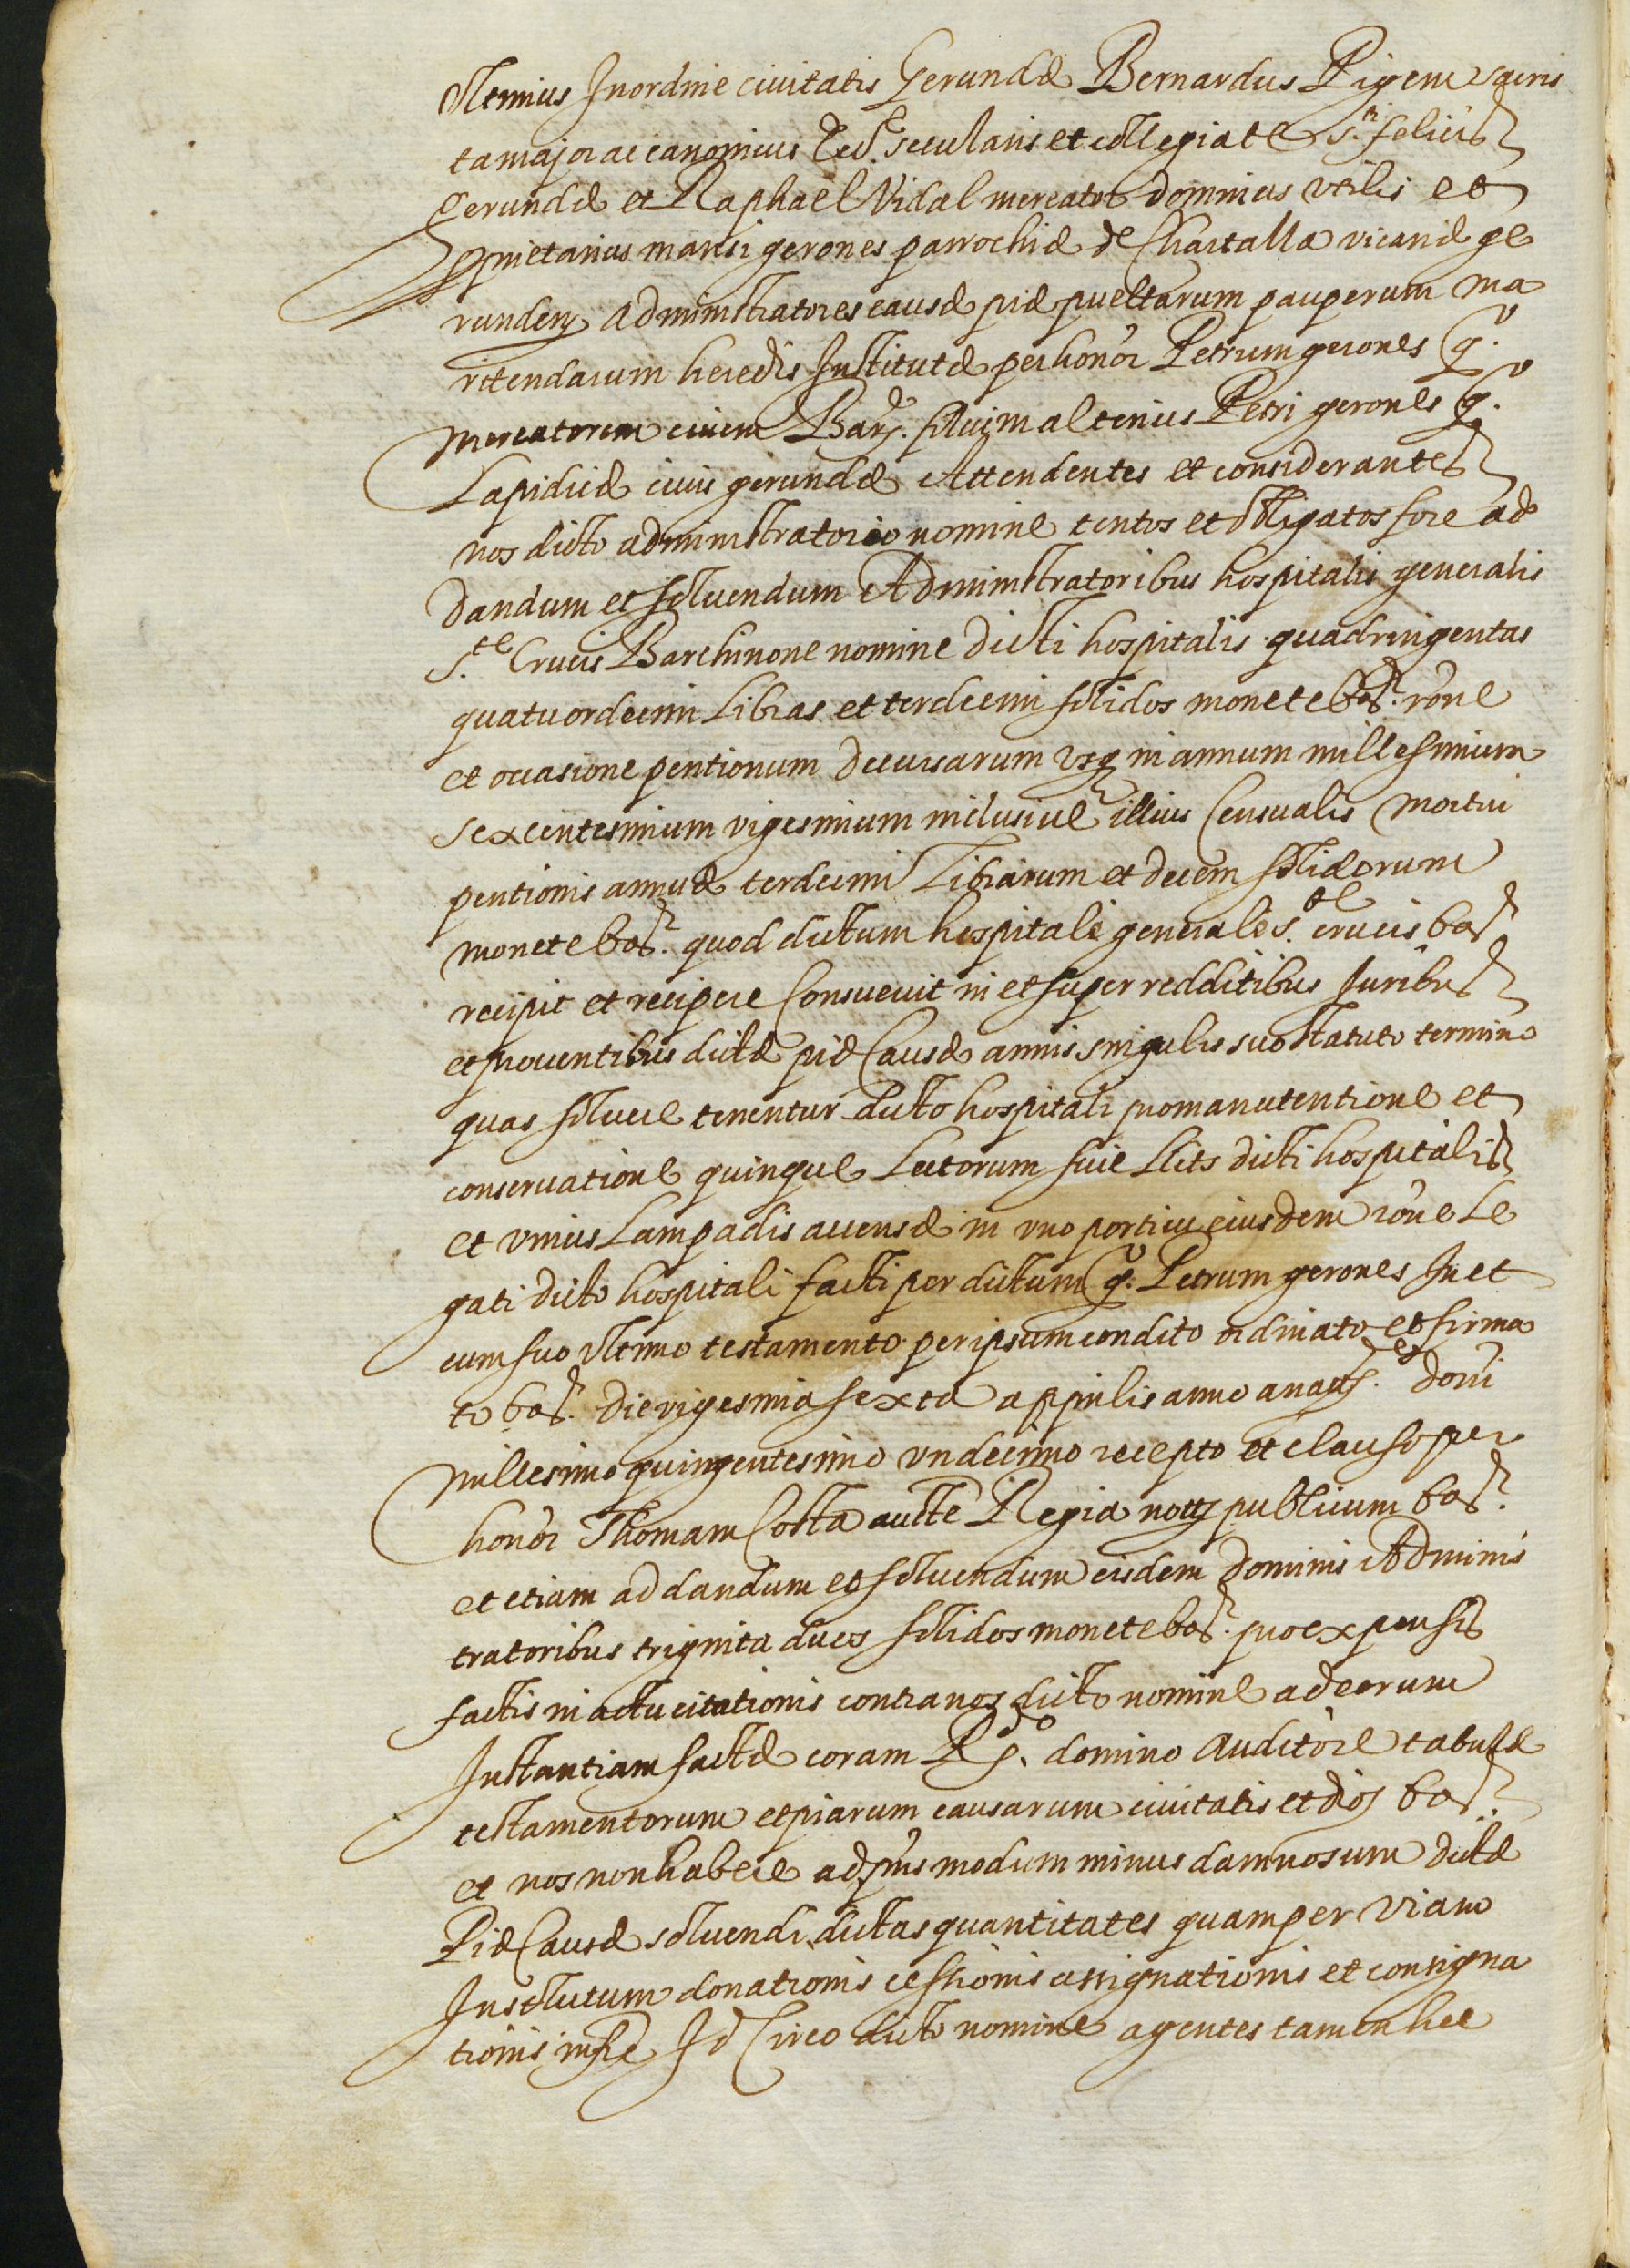 Ultimus In ordine civitatis Gerundæ Bernardus Pigem sacris
ta major ac canonicus Eccl.ᵉ secularis et collegiatæ s.ᵗⁱ felicis
gerundæ et Raphael Vidal mercator dominus utilis et
proprietarius mansi gerones parrochiæ de Chartalla vicariæ ge
runden administratores causæ piæ puellarum pauperum ma
ritandarum heredis Institutæ per honor Petrum gerones q.º
mercatorem civem Bar. filium alterius Petri gerones q.º
Lapicidæ civis gerundæ Attendentes et considerantes
nos dicto administratorio nomine tentos et obligatos fore ad
dandum et solvendum Administratoribus hospitalis generalis
s.ᵗᵉ Crucis Barchinone nomine dicti hospitalis quadringentas
quatuordecim Libras et terdecim solidos monete bar. rône
et occasione pentionum decursarum usq in annum millesimum
sexcentesimum vigesimum inclusive illius Censualis mortui
pentionis annuæ terdecim Librarum et decem solidorum
monete bar. quod dictum hospitale generale s.ᵗᵉ crucis bar
recipit et recipere Consuevit in et super redditibus Juribus
et proventibus dictæ piæ Causæ annis singulis suo statuto termino
quas solvere tenentur dicto hospitali pro manutentione et
conservatione quinque Lectorum sive Llits dicti hospitalis
et unius Lampadis accensæ in uno porticu eiusdem rône Le
gati dicto hospitali facti per dictum q.º Petrum gerones In et
cum suo ultimo testamento per ipsum condito ordinato et firma
to bar. die vigesima sexta apprilis anno a natᵗᵉ. domi
millesimo quingentesimo undecimo recepto et clauso per
honor Thomam Costa aucte Regia not publicum bar.
et etiam ad dandum et solvendum eisdem dominis Adminis
tratoribus triginta duos solidos monete bar. pro expensis
factis in actu citationis contra nos dicto nomine ad eorum
Instantiam factæ coram R.ᵈᵒ domino Auditore tabulæ
testamentorum et piarum causarum civitatis et dioc bar.
et nos non habere ad præns modum minus damnosum dictæ
Piæ Causæ solvendi dictas quantitates quam per viam
Insolutum donationis cessionis assignationis et consigna
tionis infre Id Circo dicto nomine agentes tamen hec